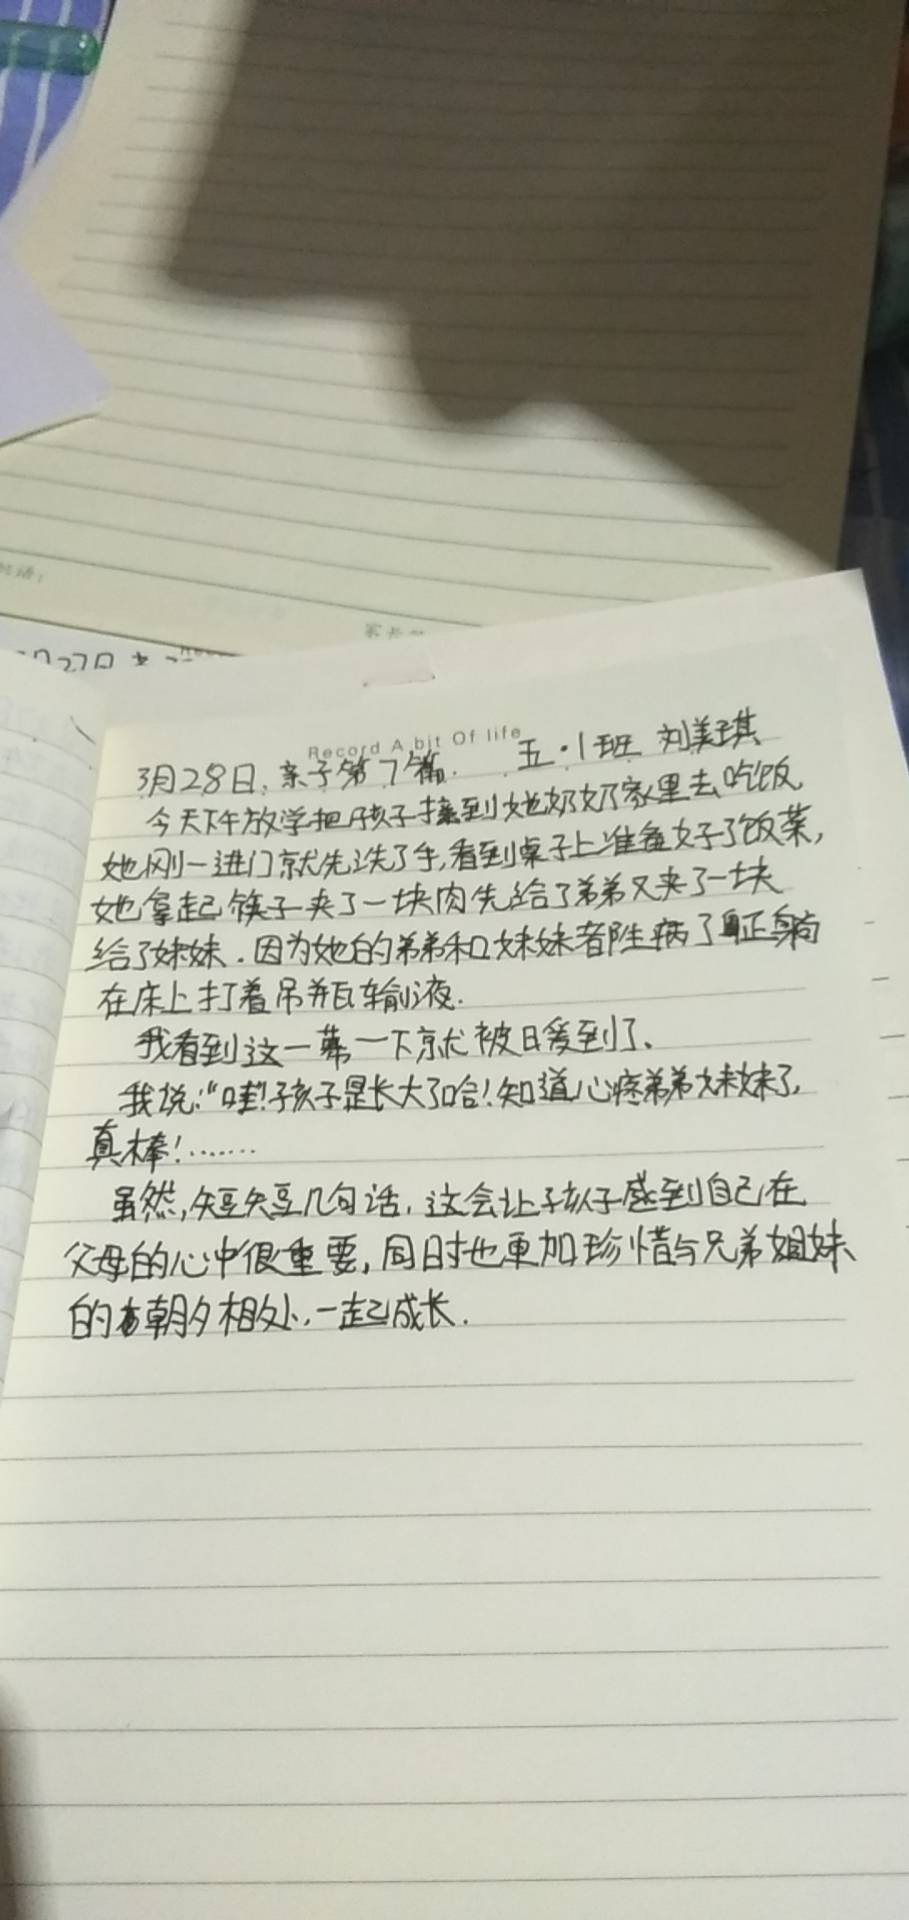 月27日
Record A bit Of life
3月28日,亲子第7篇. 五·1班 刘美琪
今天下午放学把孩子接到她奶奶家里去吃饭,
她刚一进门就先洗了手,看到桌子上准备好了饭菜,
她拿起筷子夹了一块肉先给了弟弟又夹了一块
给了妹妹.因为她的弟弟和妹妹都生病了正躺
在床上打着吊瓶输液.
我看到这一幕一下就被暖到了.
我说:“哇!孩子是长大了哈!知道心疼弟弟妹妹了,
真棒!.......
虽然,短短几句话,这会让孩子感到自己在
父母的心中很重要,同时也更加珍惜与兄弟姐妹
的朝夕相处,一起成长.